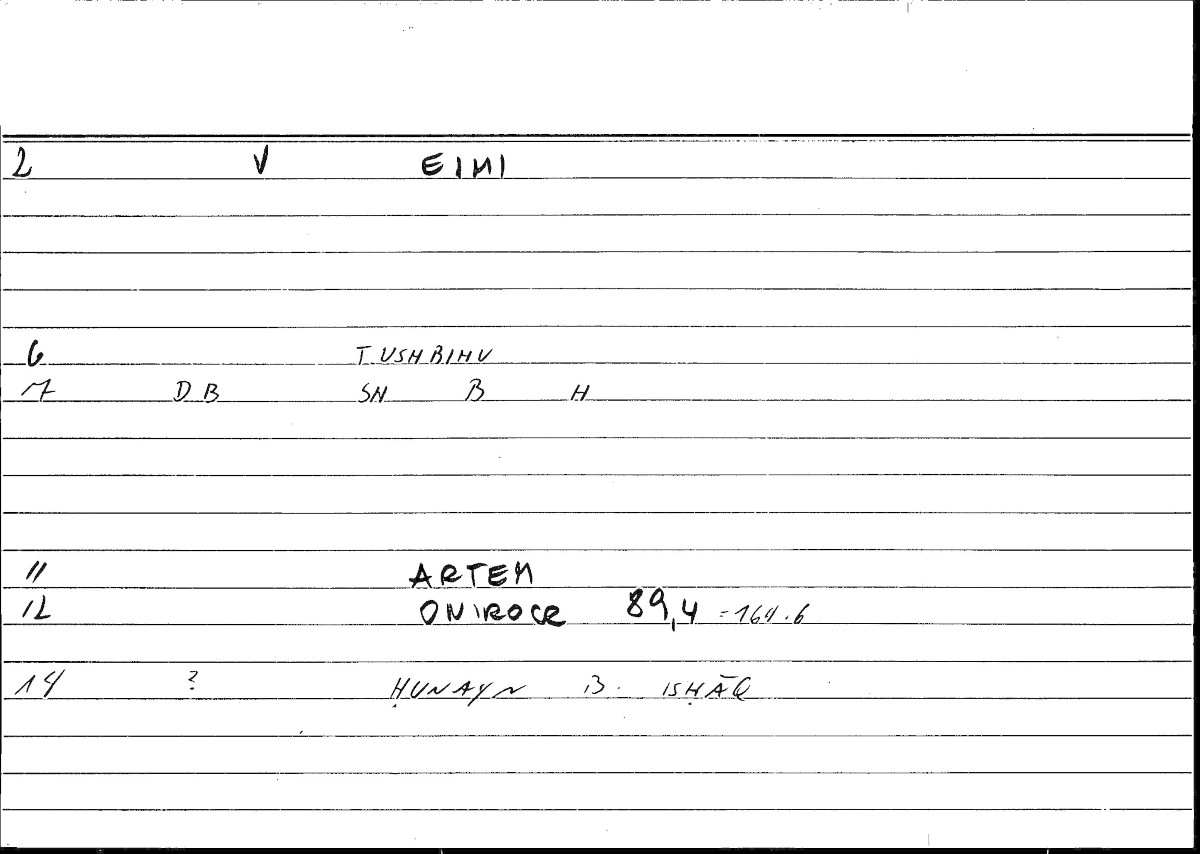 2 V EIMI
6 T.USHBIHU
7 DB SH B H
11 ARTEM
12 ONIROCR 89,4 = 164.6
14 ? ḤUNAYN B. ISḤĀQ